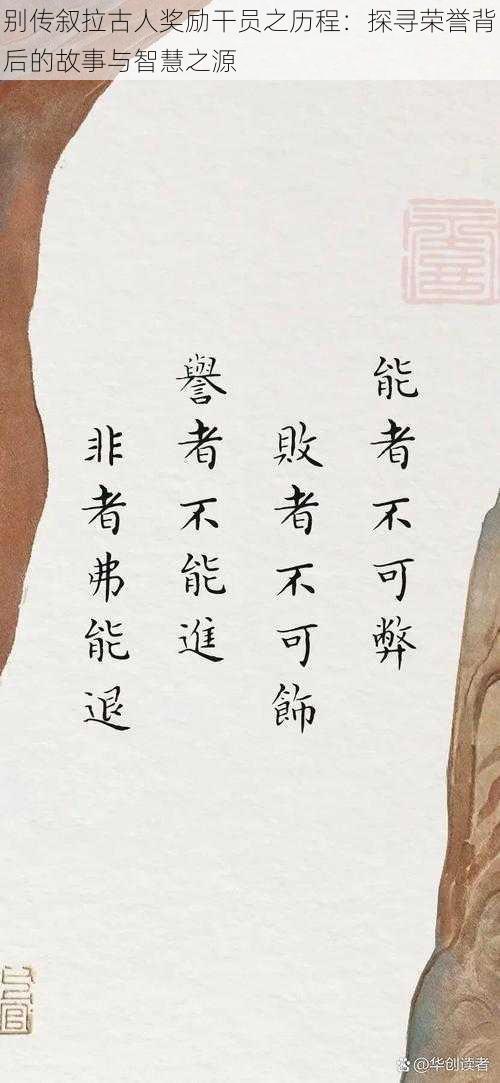 别传叙拉古人奖励干员之历程：探寻荣誉背
后的故事与智慧之源
能者不可弊
敗者不可飾
譽者不能進
非者弗能退
@华创读者